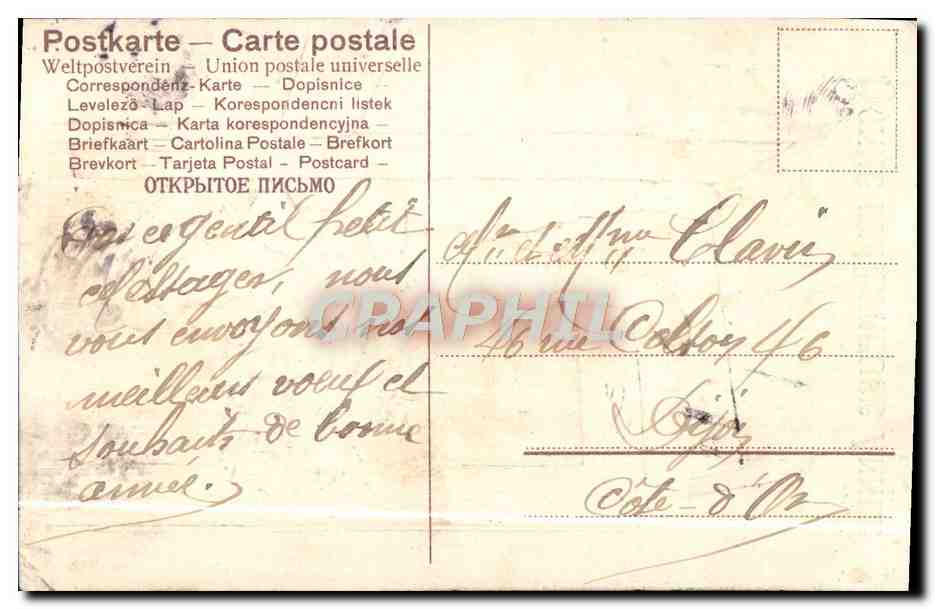 Postkarte — Carte postale
Weltpostverein — Union postale universelle
Correspondenz-Karte — Dopisnice
Levelező-Lap — Korespondencni listek
Dopisnica — Karta korespondencyjna —
Briefkaart — Cartolina Postale — Brefkort
Brevkort — Tarjeta Postal - Postcard —
ОТКРЫТОЕ ПИСЬМО
ce gentil petit
Messager, nous
vous envoyons nos
meilleurs voeux et
souhaits de bonne
année.
CPARAPHIL
Mr et Mme Clavin
46 rue 46
Dijon
Côte-d'Or